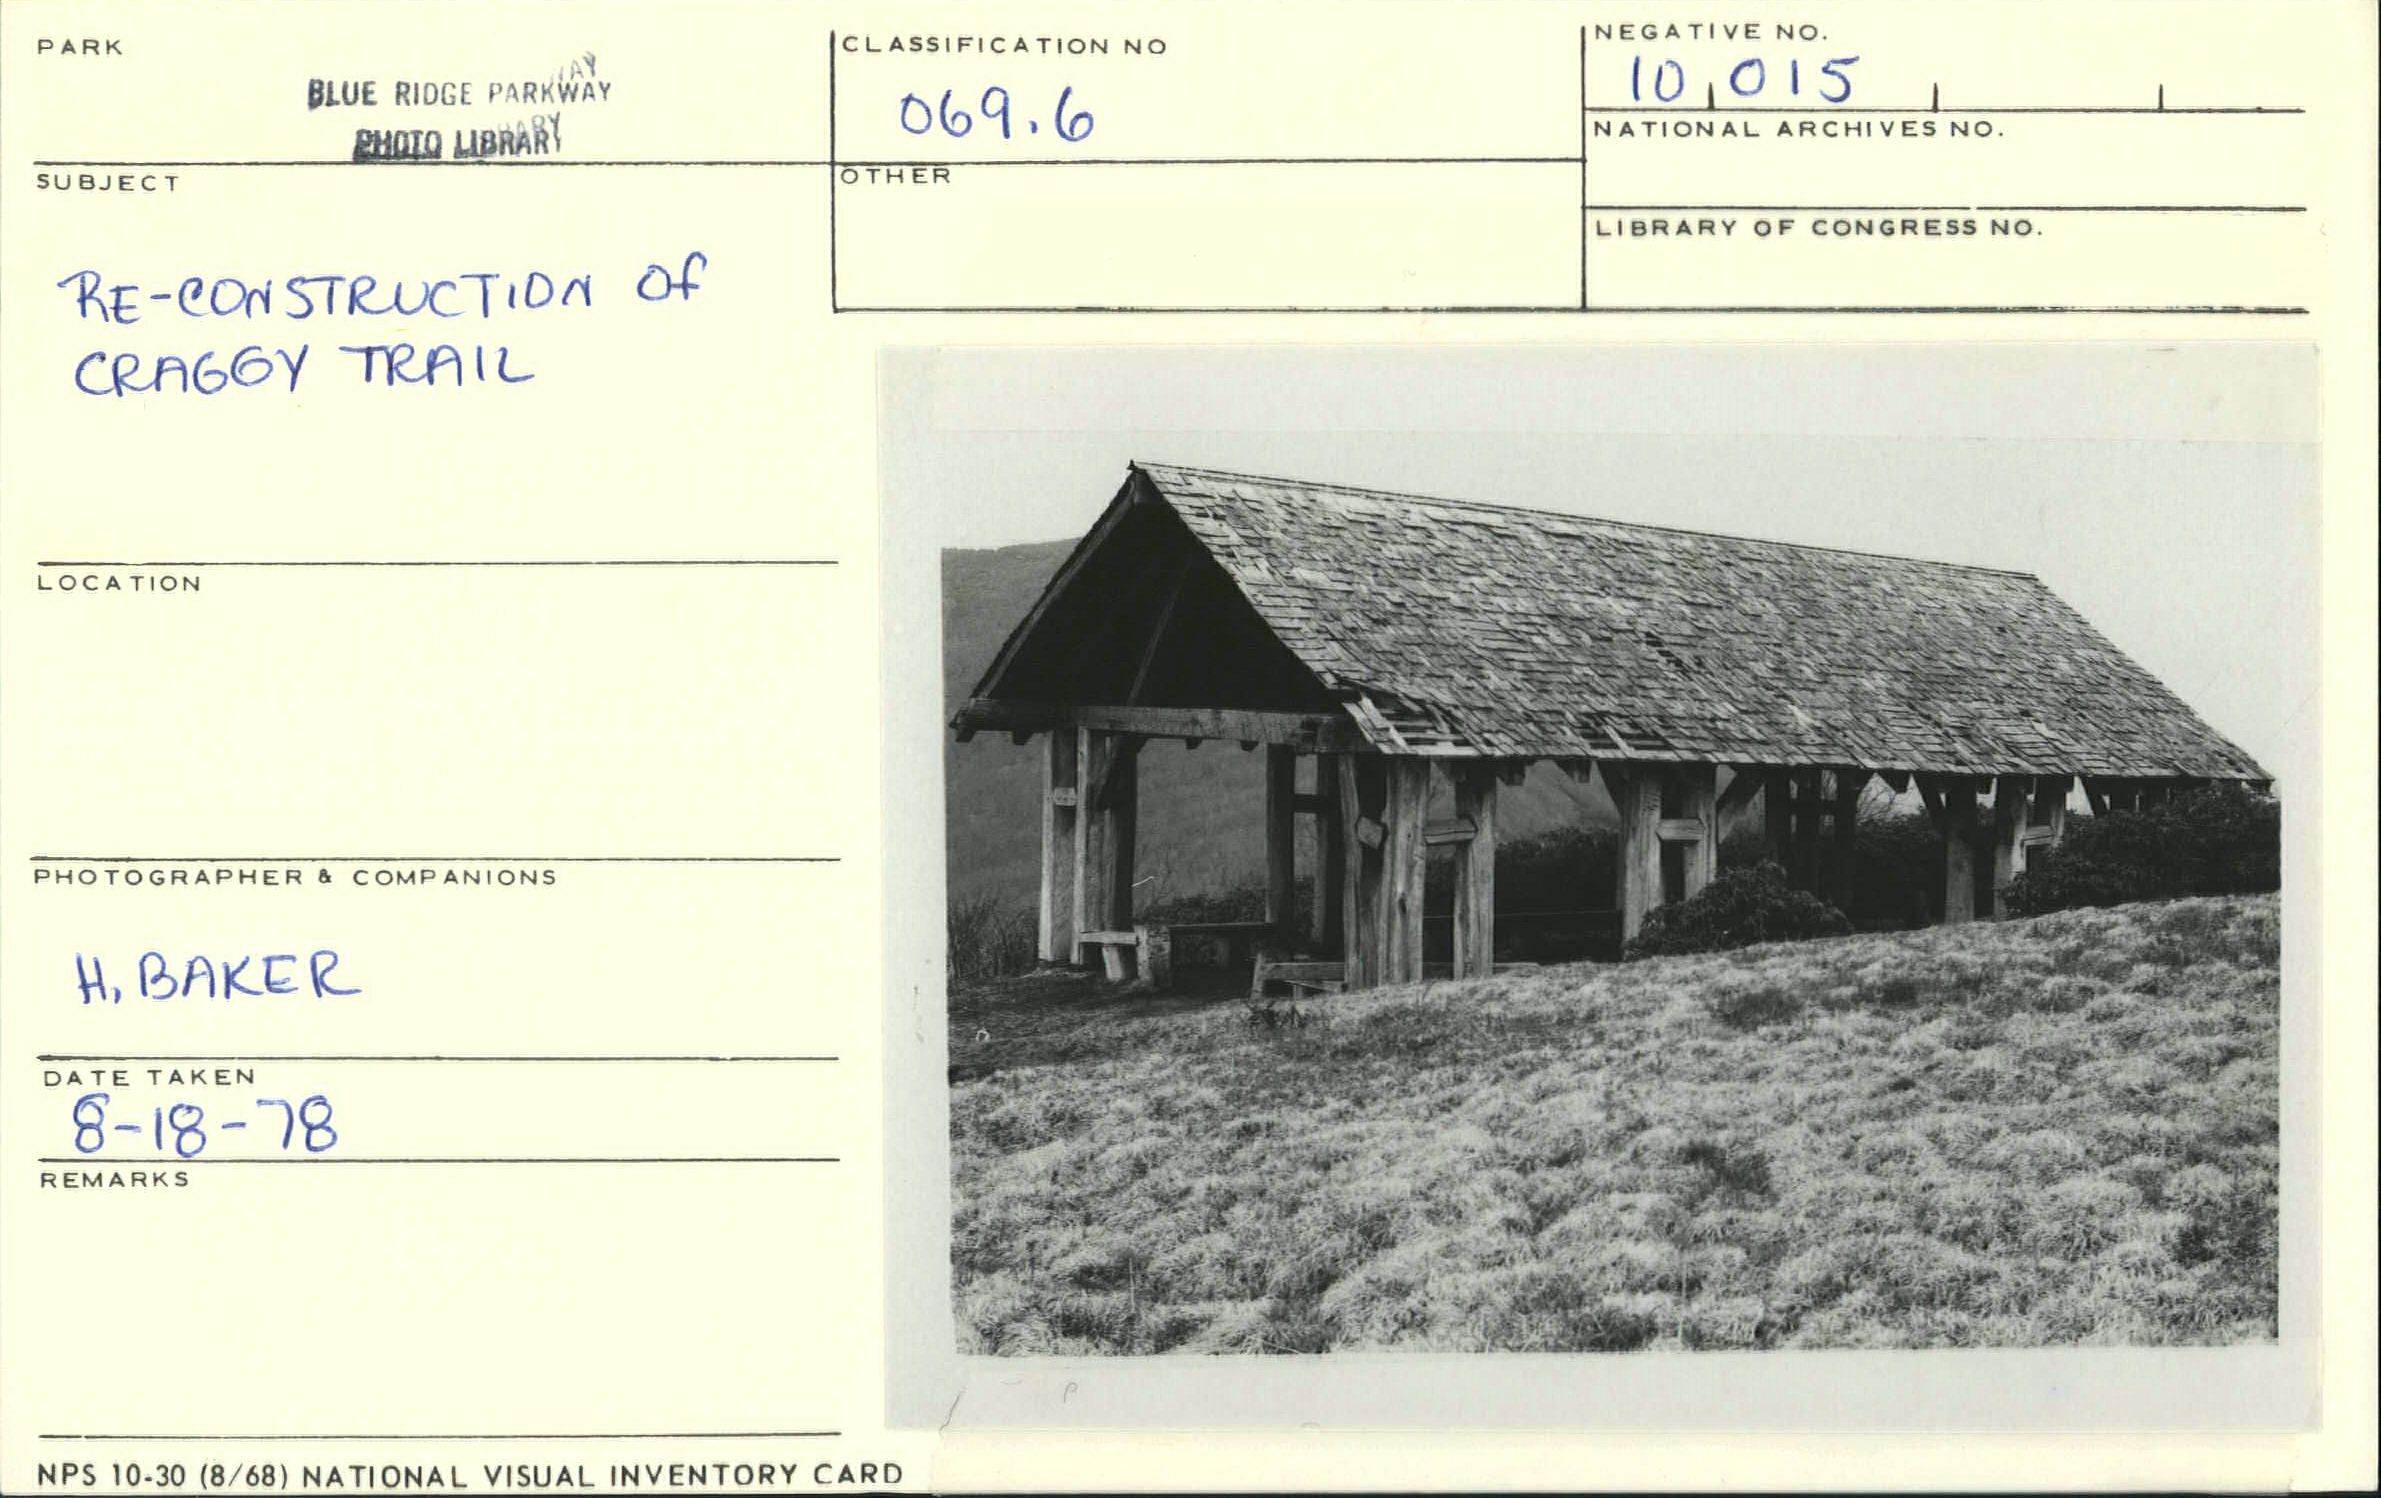 PARK
BLUE RIDGE PARKWAY
PHOTO LIBRARY
CLASSIFICATION NO
069.6
NEGATIVE NO.
10,015
NATIONAL ARCHIVES NO.
OTHER
LIBRARY OF CONGRESS NO.
SUBJECT
RE-CONSTRUCTION OF
CRAGGY TRAIL
LOCATION
PHOTOGRAPHER & COMPANIONS
H. BAKER
DATE TAKEN
8-18-78
REMARKS
NPS 10-30 (8/68) NATIONAL VISUAL INVENTORY CARD